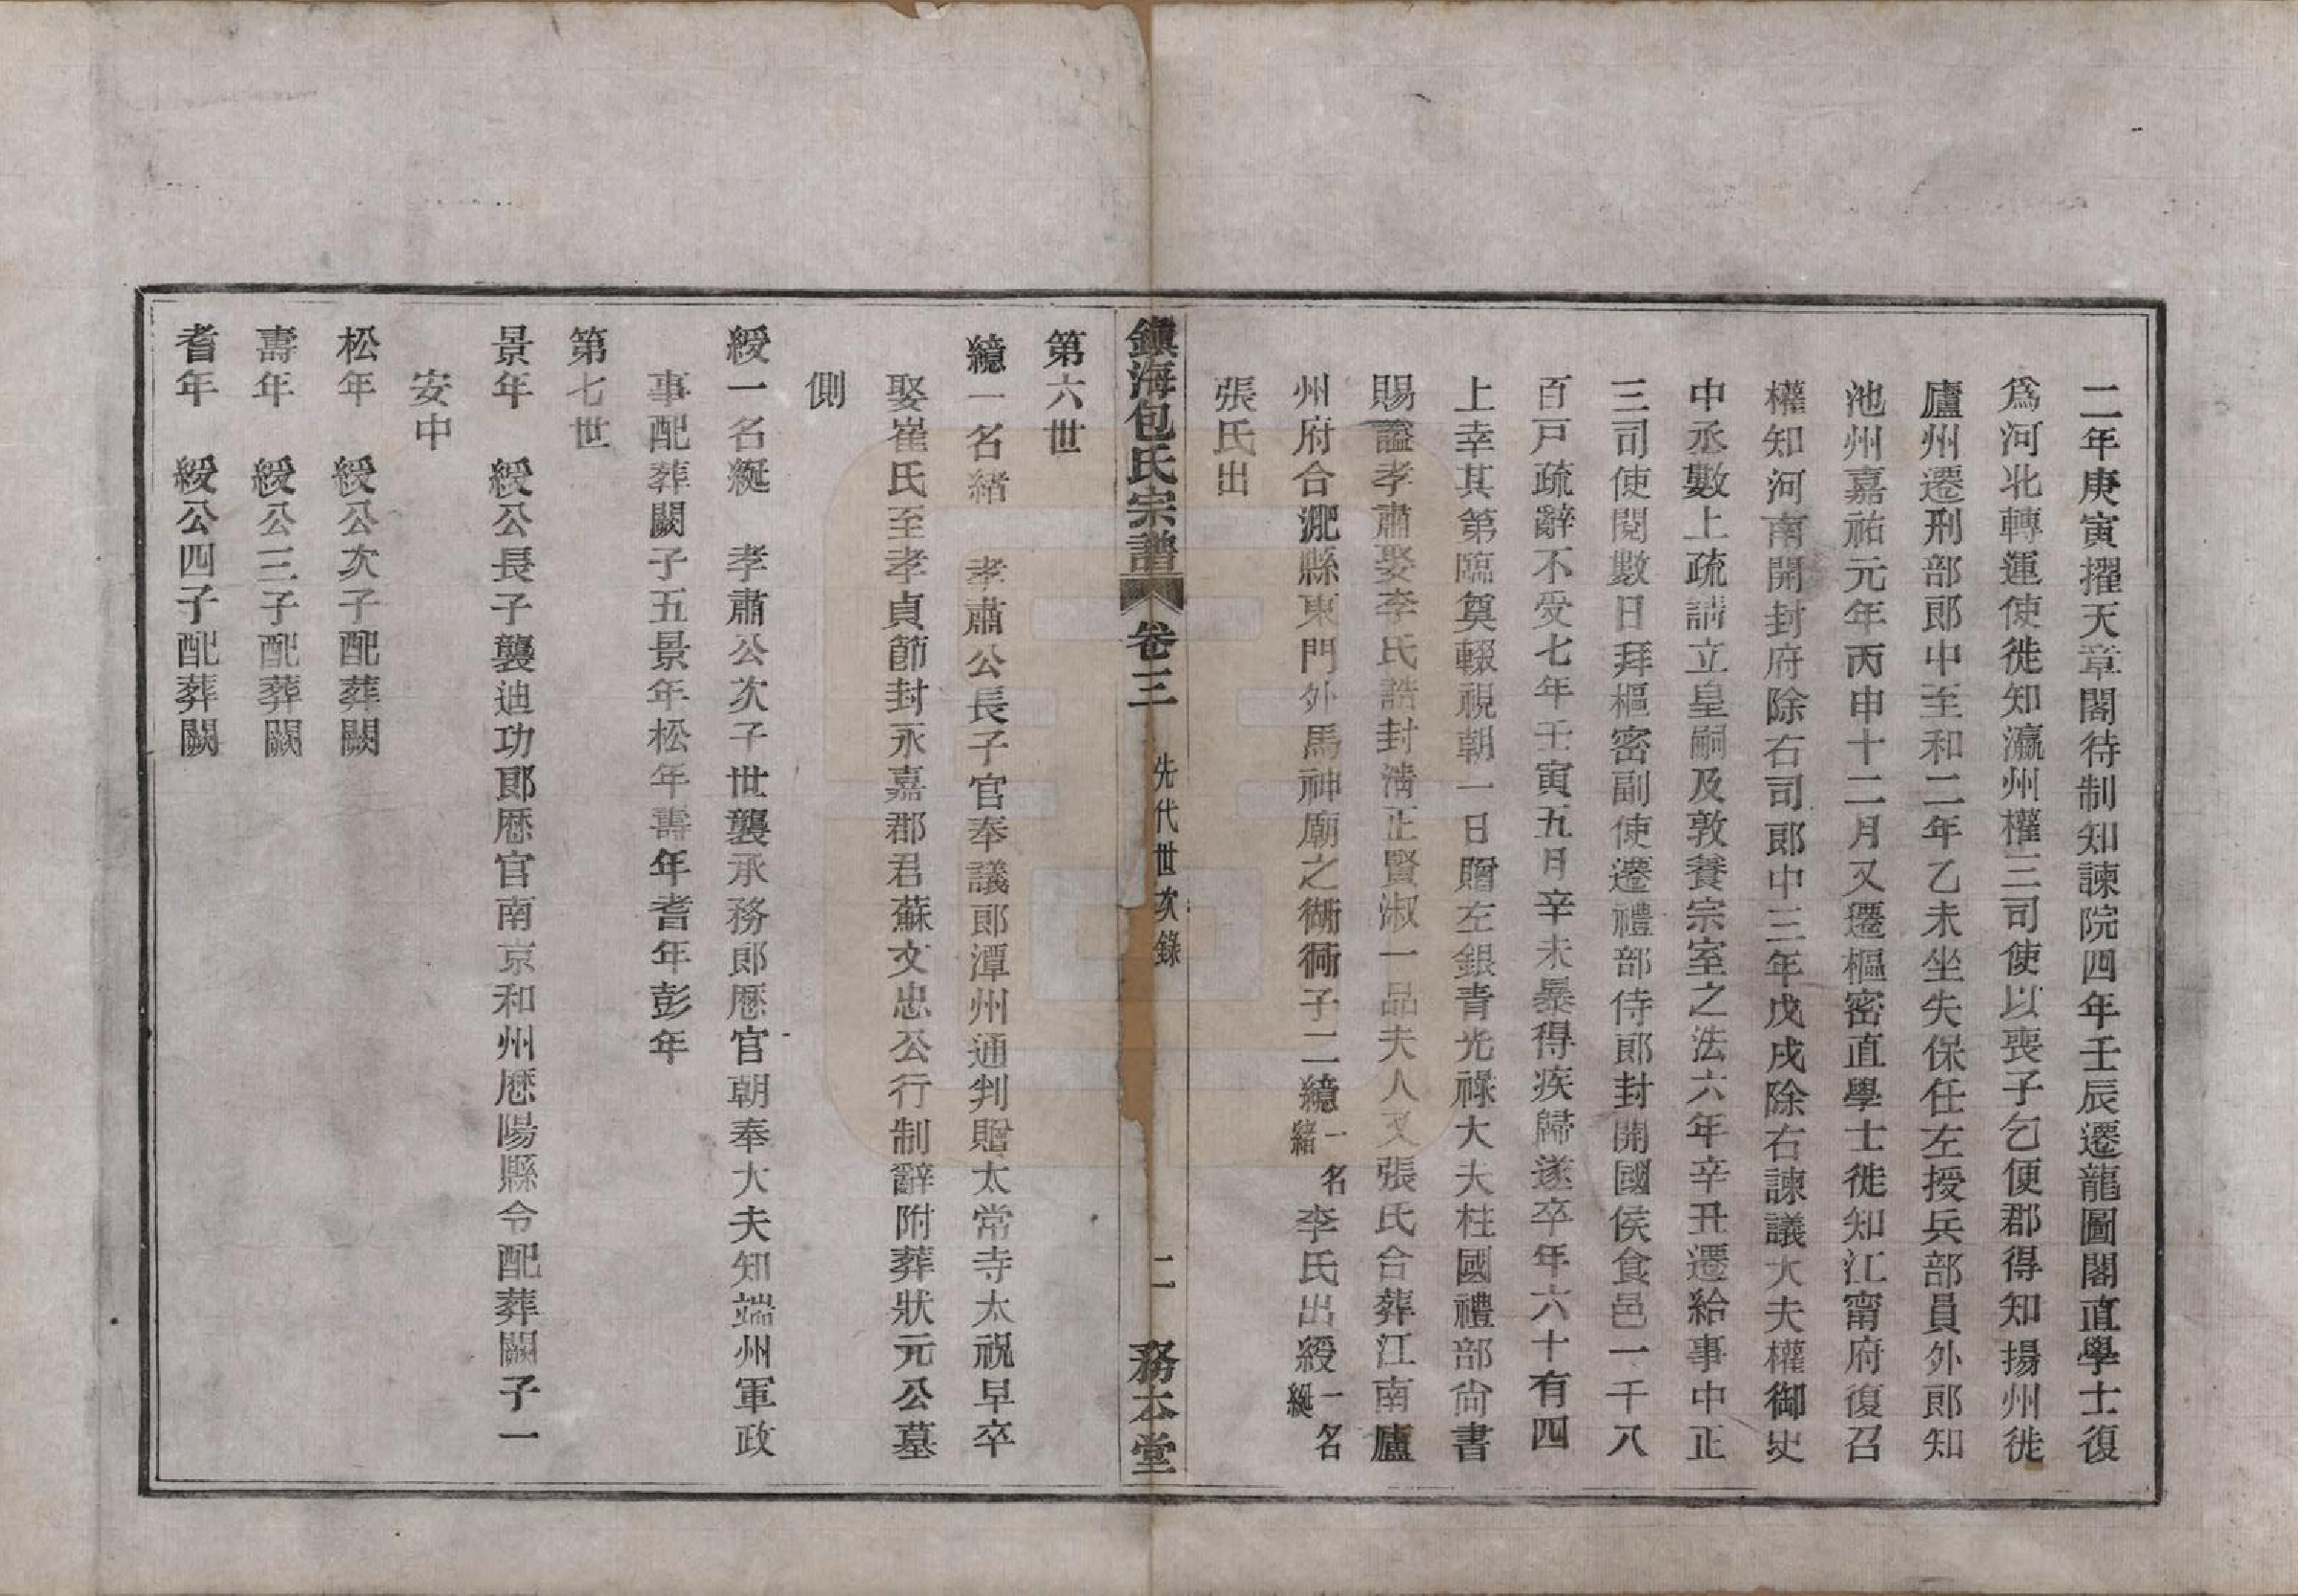 二年庚寅擢天章閣待制知諫院四年壬辰遷龍圖閣直學士復
爲河北轉運使徙知瀛州權三司使以喪子乞便郡得知揚州徙
廬州遷刑部郎中至和二年乙未坐失保任左授兵部員外郎知
池州嘉祐元年丙申十二月又遷樞密直學士徙知江甯府復召
權知河南開封府除右司郎中三年戊戌除右諫議大夫權御史
中丞數上疏請立皇嗣及敦養宗室之法六年辛丑遷給事中正
三司使閱數日拜樞密副使遷禮部侍郎封開國侯食邑一千八
百戸疏辭不受七年壬寅五月辛未暴得疾歸遂卒年六十有四
上幸其第臨奠輟視朝一日贈左銀青光祿大夫柱國禮部尙書
賜謚孝肅娶李氏誥封淸正賢淑一品夫人又張氏合葬江南廬
州府合淝縣東門外馬神廟之衚衕子二繶一名緒李氏出綬一名綖
張氏出
鎭海包氏宗譜 卷三 先代世次錄 二 務本堂
第六世
繶一名緒 孝肅公長子官奉議郎潭州通判贈太常寺太祝早卒
娶崔氏至孝貞節封永嘉郡君蘇文忠公行制辭附葬狀元公墓
側
綬一名綖 孝肅公次子世襲承務郎歷官朝奉大夫知端州軍政
事配葬闕子五景年松年壽年耆年彭年
第七世
景年 綬公長子襲迪功郎歷官南京和州歷陽縣令配葬闕子一
安中
松年 綬公次子配葬闕
壽年 綬公三子配葬闕
耆年 綬公四子配葬闕